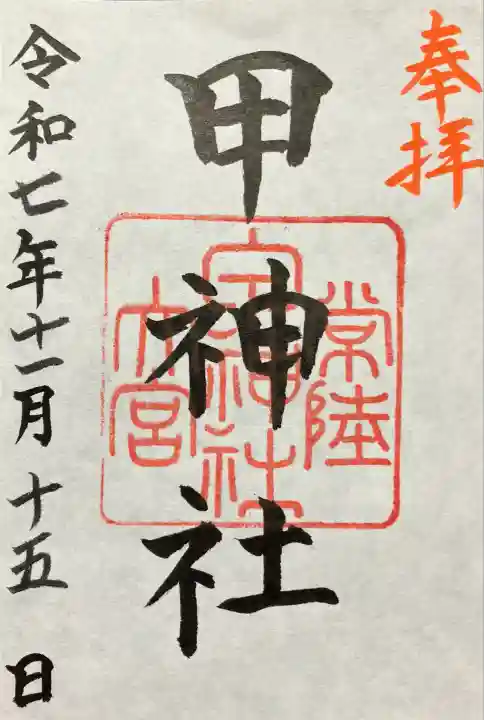 奉拝
甲神社
常陸
六宮
令和七年十一月十五日